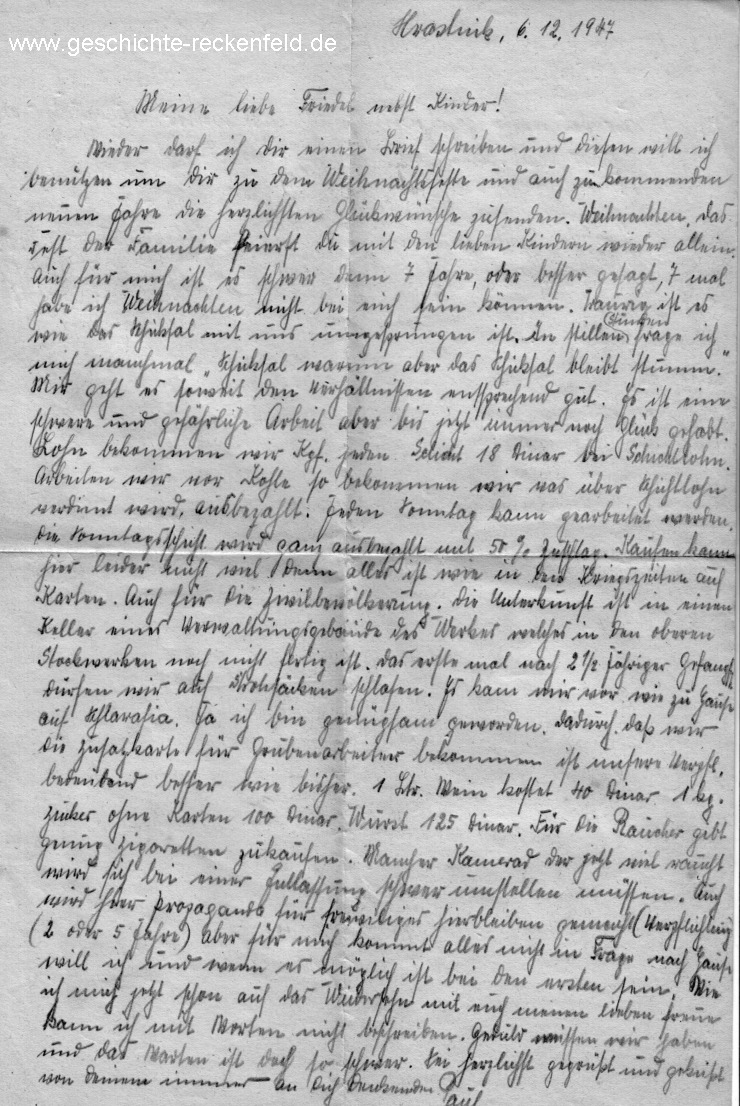 www.geschichte-reckenfeld.de
Hrastnik, 6. 12. 1947
Meine liebe Friedel nebst Kinder!
Wieder darf ich dir einen Brief schreiben und diesen will ich
benützen um dir zu dem Weihnachtsfeste und auch zum kommenden
neuen Jahre die herzlichsten Glückwünsche zusenden. Weihnachten, das
Fest der Familie feierst du mit den lieben Kindern wieder allein.
Auch für mich ist es schwer denn 7 Jahre, oder besser gesagt, 7 mal
habe ich Weihnachten nicht bei euch sein können. Traurig ist es
wie das Schiksal mit uns umgesprungen ist. In stillen Stunden frage ich
mich manchmal „Schiksal warum aber das Schiksal bleibt stumm."
Mir geht es soweit den Verhältnissen entsprechend gut. Es ist eine
schwere und gefährliche Arbeit aber bis jetzt immer noch Glück gehabt.
Lohn bekommen wir Kgf. jeden Schicht 18 Dinar bei Schichtlohn.
Arbeiten wir vor Kohle so bekommen wir was über Schichtlohn
verdient wird, ausbezahlt. Jeden Sonntag kann gearbeitet werden.
die Sonntagsschicht wird ganz ausbezahlt mit 50 % Zuschlag. Kaufen kann
hier leider nicht viel denn alles ist wie in den Kriegszeiten auf
Karten. Auch für die Zwilbevölkerung. Die Unterkunft ist in einen
Keller eines Verwaltungsgebäude des Werkes welches in den oberen
Stockwerken noch nicht fertig ist. Das erste mal nach 2 1/2 Jähriger Gefangs.
dürfen wir auf Strohsäcken schlafen. Es kam mir vor wie zu Hause
auf Schlarafia. Ja ich bin genügsam geworden. Dadurch, daß wir
die Zusatzkarte für Grubenarbeiter bekommen ist unsere Verpfl.
bedeutend besser wie bisher. 1 Ltr. Wein kostet 40 Dinar 1 kg.
Zucker ohne Karten 100 Dinar. Wurst 125 Dinar. Für die Raucher gibt
genug Zigaretten zukaufen. Mancher Kamerad der jetzt viel raucht
wird sich bei einer Entlassung schwer umstellen müssen. Auch
wird hier Propaganda für freiwilliges hierbleiben gemacht (Verpflichtung
(2 oder 5 Jahre) aber für mich kommt alles nicht in Frage nach Hause
will ich und wenn es möglich ist bei den ersten sein. Wie
ich mich jetzt schon auf das Wiedersehn mit euch meinen lieben freue
kann ich mit Worten nicht beschreiben. Geduld müssen wir haben
und das Warten ist doch so schwer. Sei herzlichst gegrüßt und geküßt
von deinem immer an dich denkenden Paul